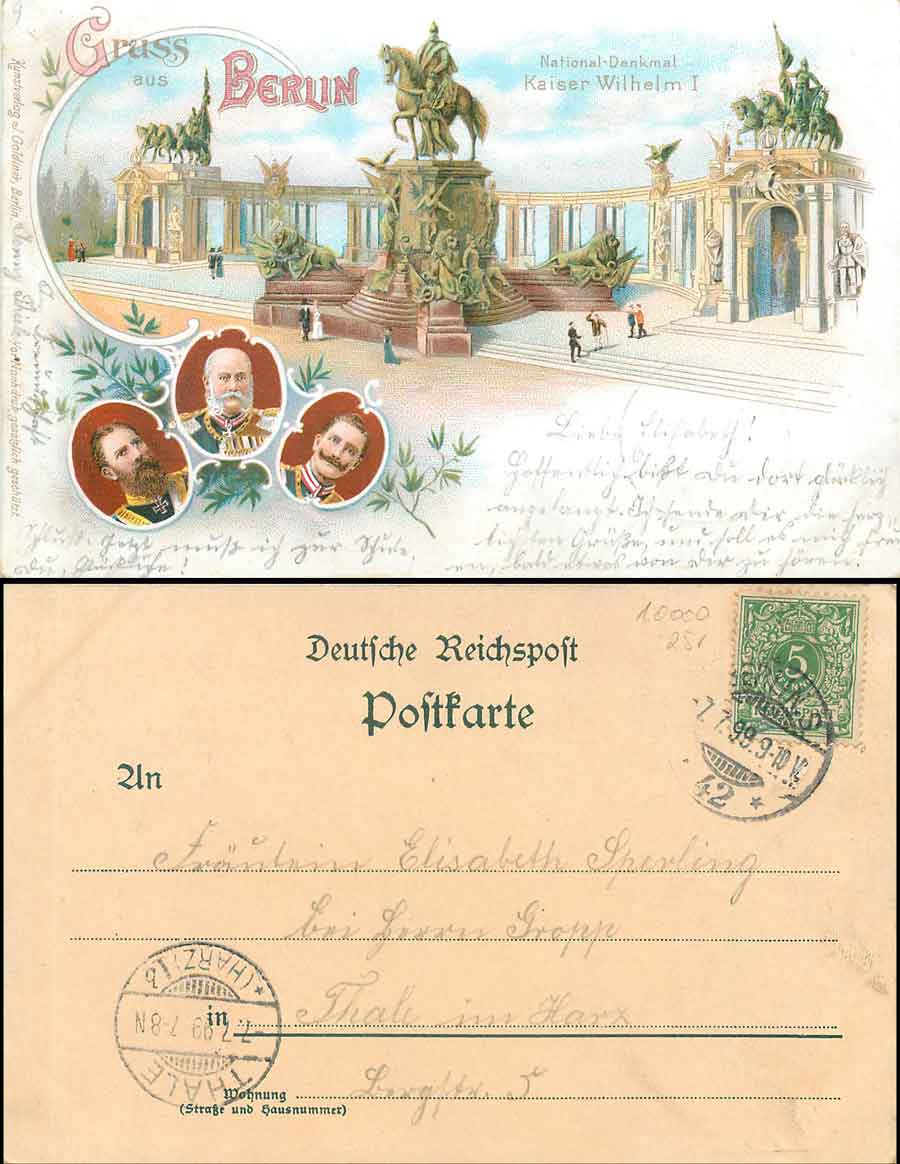 Gruss
aus
BERLIN
National-Denkmal
Kaiser Wilhelm I
Kunstverlag J. Goldiner, Berlin.
gesetzlich geschützt
Liebe Elisabeth!
Hoffentlich bist du dort glücklich
angelangt. Ich sende dir die herz
lichsten Grüße, und soll es mich freu
en, bald etwas von dir zu hören.
Schluß. Jetzt muß ich zur Schule.
du, Glückliche!
10000
251
Deutsche Reichspost
Postkarte
5
7.7.99.9-10V.
42 *
An
Fräulein Elisabeth Sperling
bei Herrn Gropp
in Thale im Harz
Bergstr. 5
Wohnung
(Straße und Hausnummer)
THALE
7.7.99 7-8N
*(HARZ)